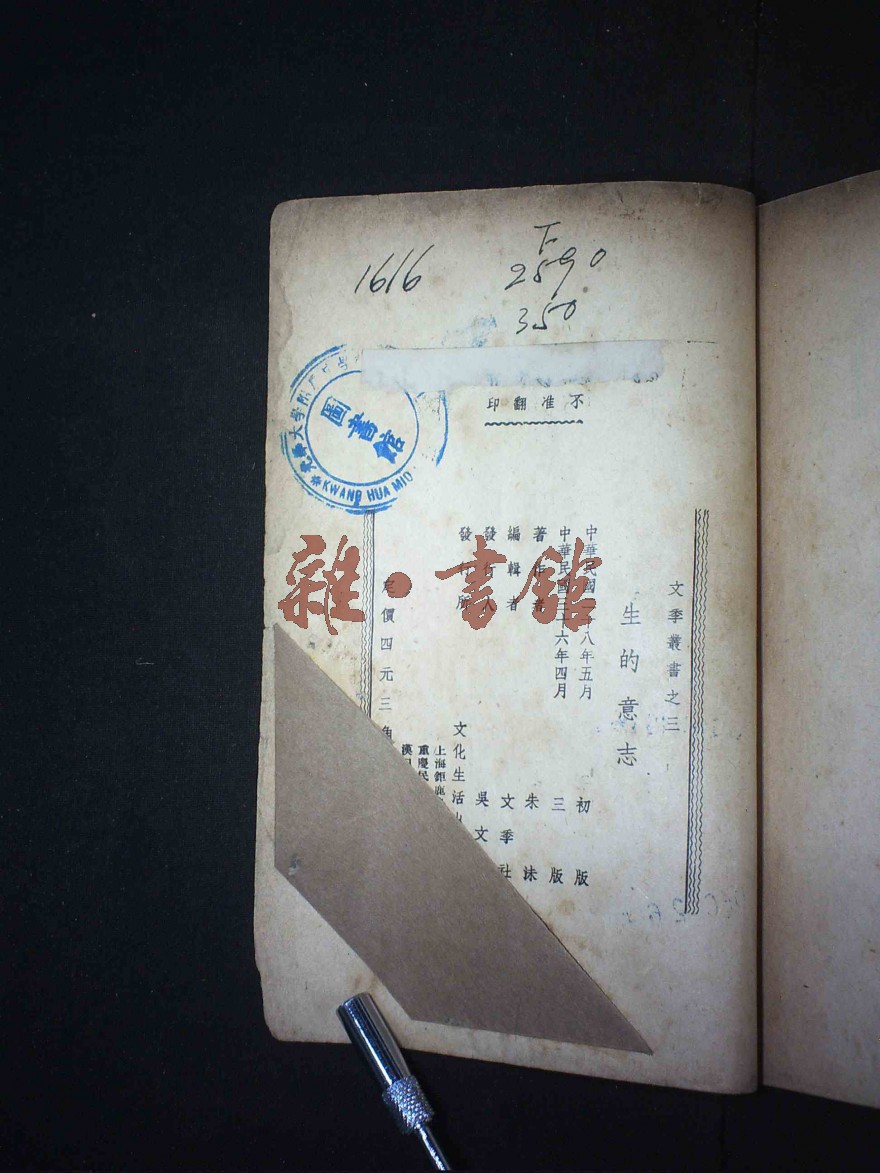 1616
T
2590
350
不准翻印
圖書館
KWANG HUA MID
文季叢書之三
生的意志
中華民國二十八年五月初版
中華民國三十六年四月三版
著作者 朱洗
編輯者 文季社
發行人 吳文
發行所 文化生活
上海鉅鹿
重慶民
漢口
定價四元三角
雜·書館